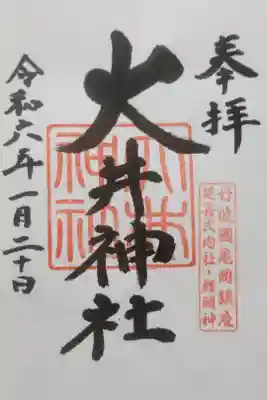 奉拝
丹波國亀岡鎮座
延喜式内社・鯉明神
大井神社
大井
神社
令和六年一月二十日